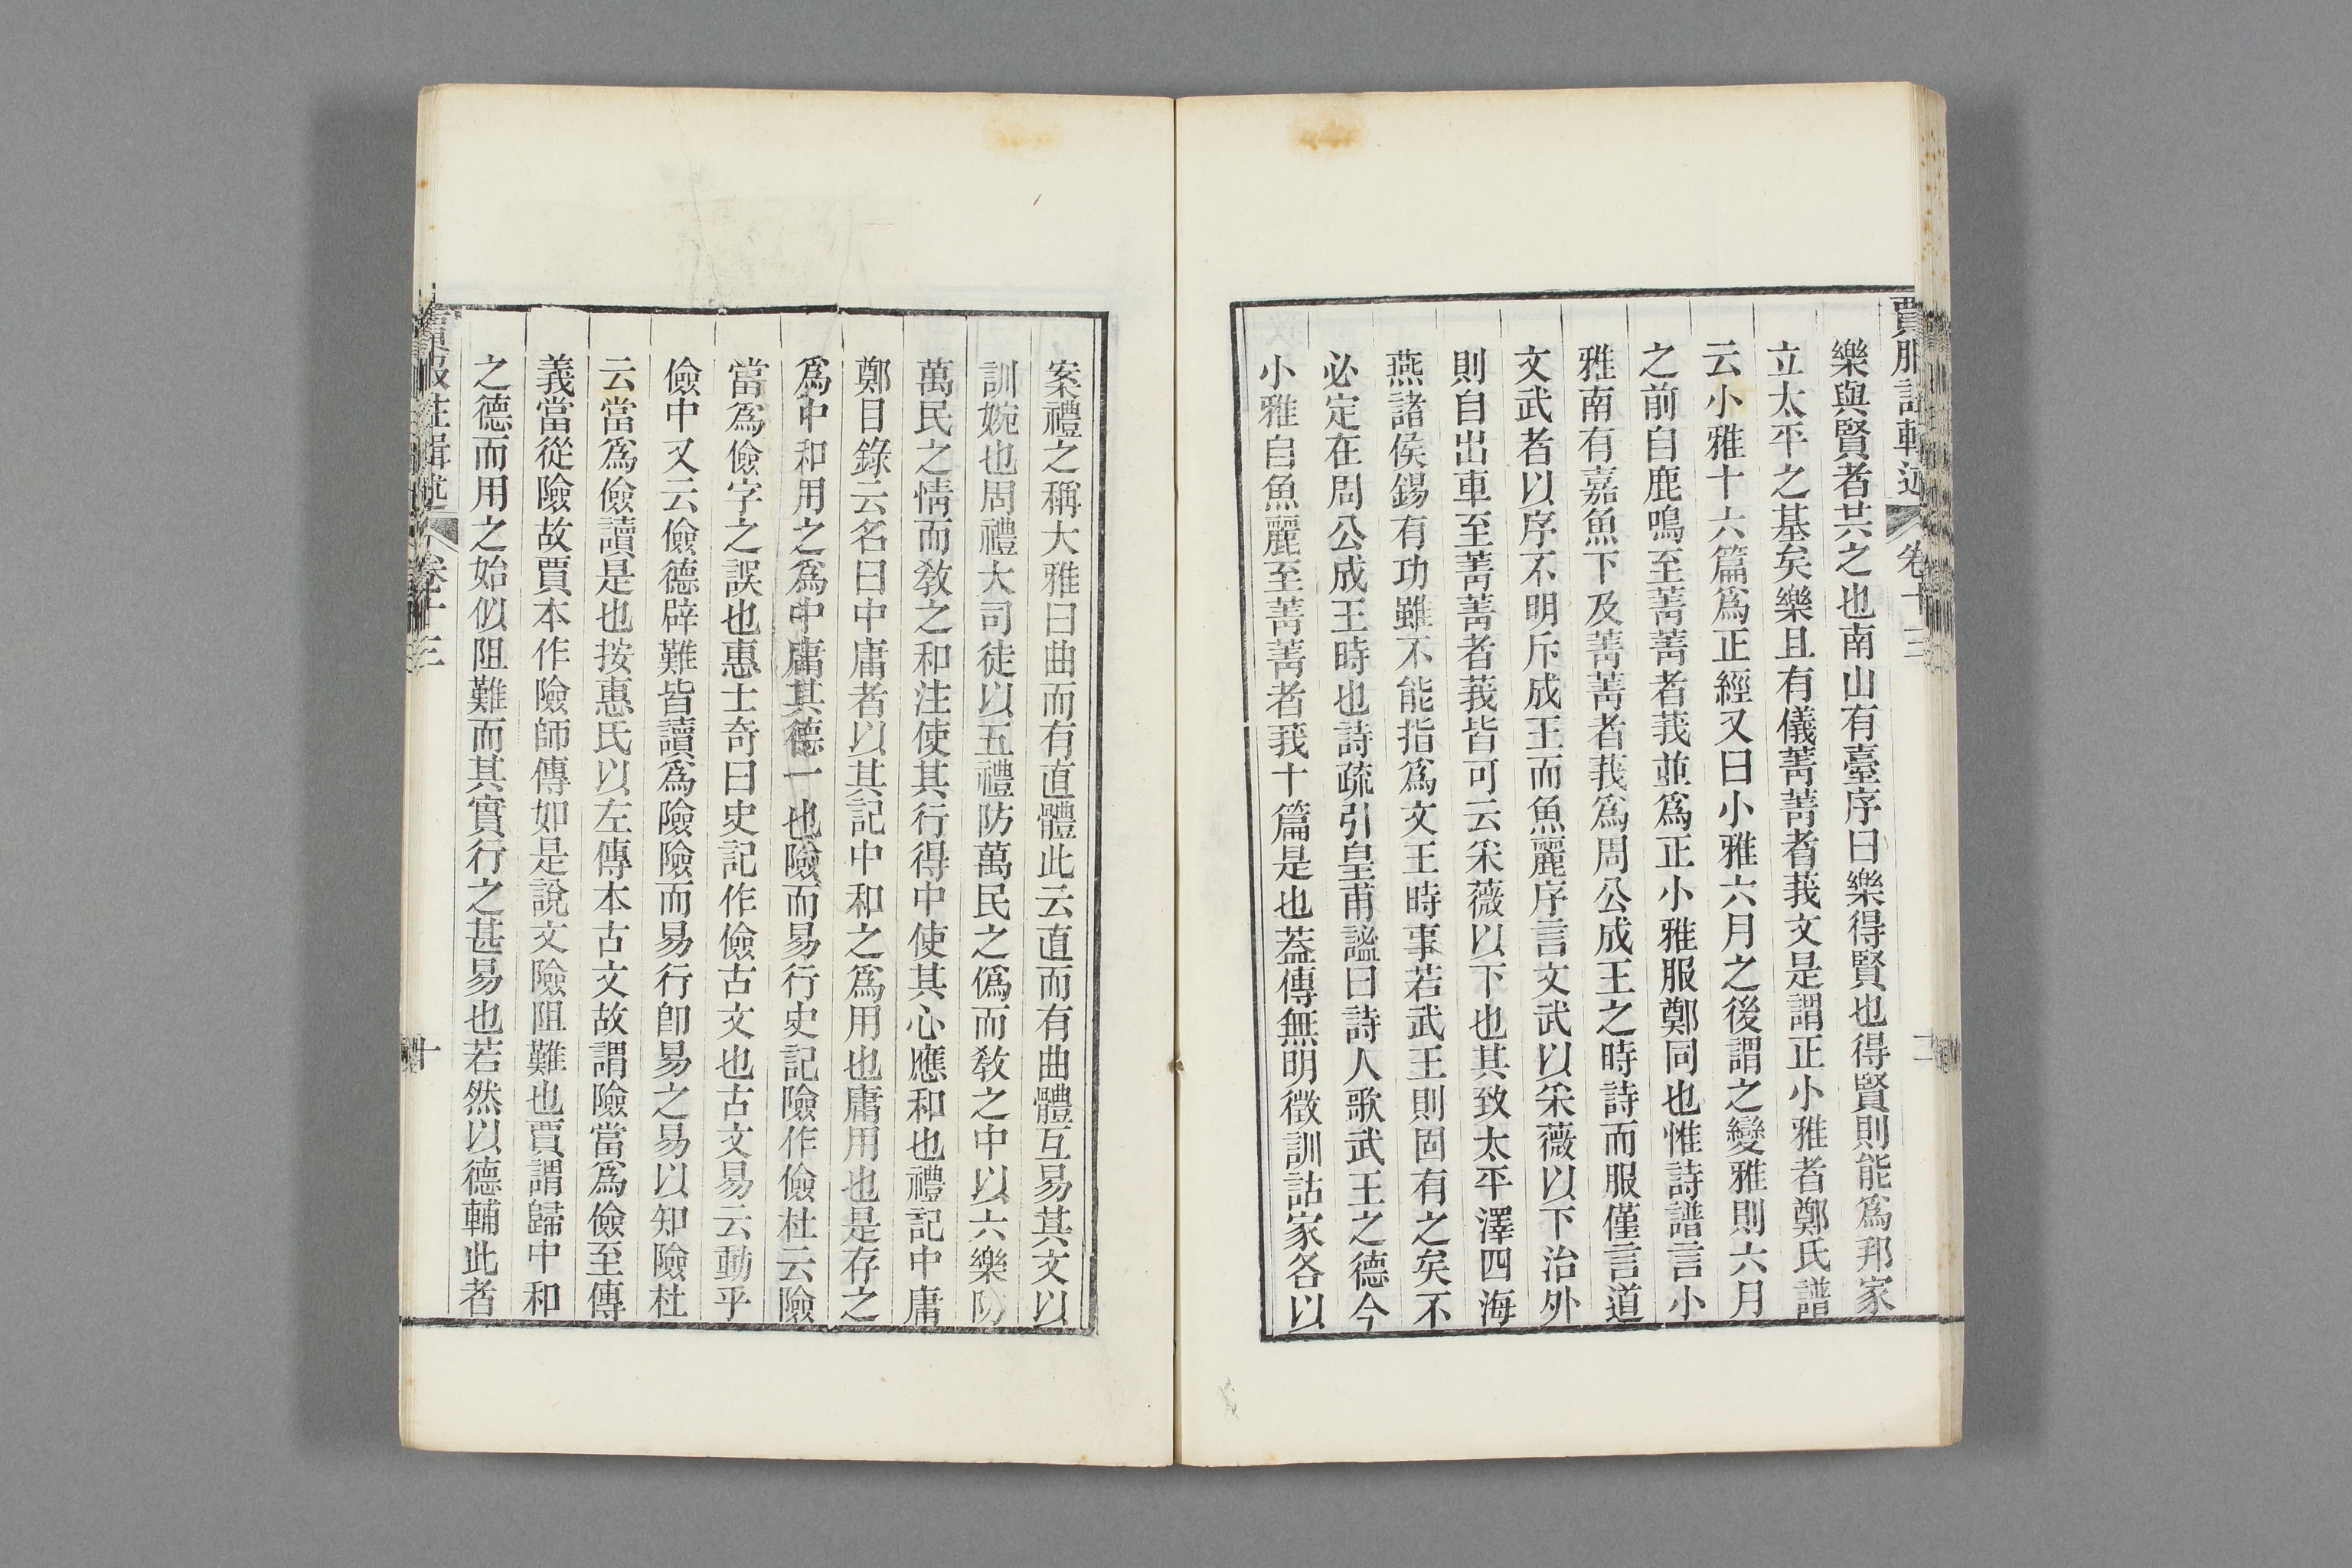 賈服註輯述 卷十三
樂與賢者共之也南山有臺序曰樂得賢也得賢則能爲邦家
立太平之基矣樂且有儀菁菁者莪文是謂正小雅者鄭氏譜
云小雅十六篇爲正經又曰小雅六月之後謂之變雅則六月
之前自鹿鳴至菁菁者莪並爲正小雅服鄭同也惟詩譜言小
雅南有嘉魚下及菁菁者莪爲周公成王之時詩而服僅言道
文武者以序不明斥成王而魚麗序言文武以采薇以下治外
則自出車至菁菁者莪皆可云采薇以下也其致太平澤四海
燕諸侯錫有功雖不能指爲文王時事若武王則固有之矣不
必定在周公成王時也詩疏引皇甫謐曰詩人歌武王之德今
小雅自魚麗至菁菁者莪十篇是也蓋傳無明徵訓詁家各以
案禮之稱大雅曰曲而有直體此云直而有曲體互易其文以
訓婉也周禮大司徒以五禮防萬民之僞而敎之中以六樂防
萬民之情而敎之和注使其行得中使其心應和也禮記中庸
鄭目錄云名曰中庸者以其記中和之爲用也庸用也是存之
爲中和用之爲中庸其德一也險而易行史記險作儉杜云險
當爲儉字之誤也惠士奇曰史記作儉古文也古文易云動乎
儉中又云儉德辟難皆讀爲險險而易行卽易之易以知險杜
云當爲儉讀是也按惠氏以左傳本古文故謂險當爲儉至傳
義當從險故賈本作險師傳如是說文險阻難也賈謂歸中和
之德而用之始似阻難而其實行之甚易也若然以德輔此者
賈服注輯述 卷十三 十